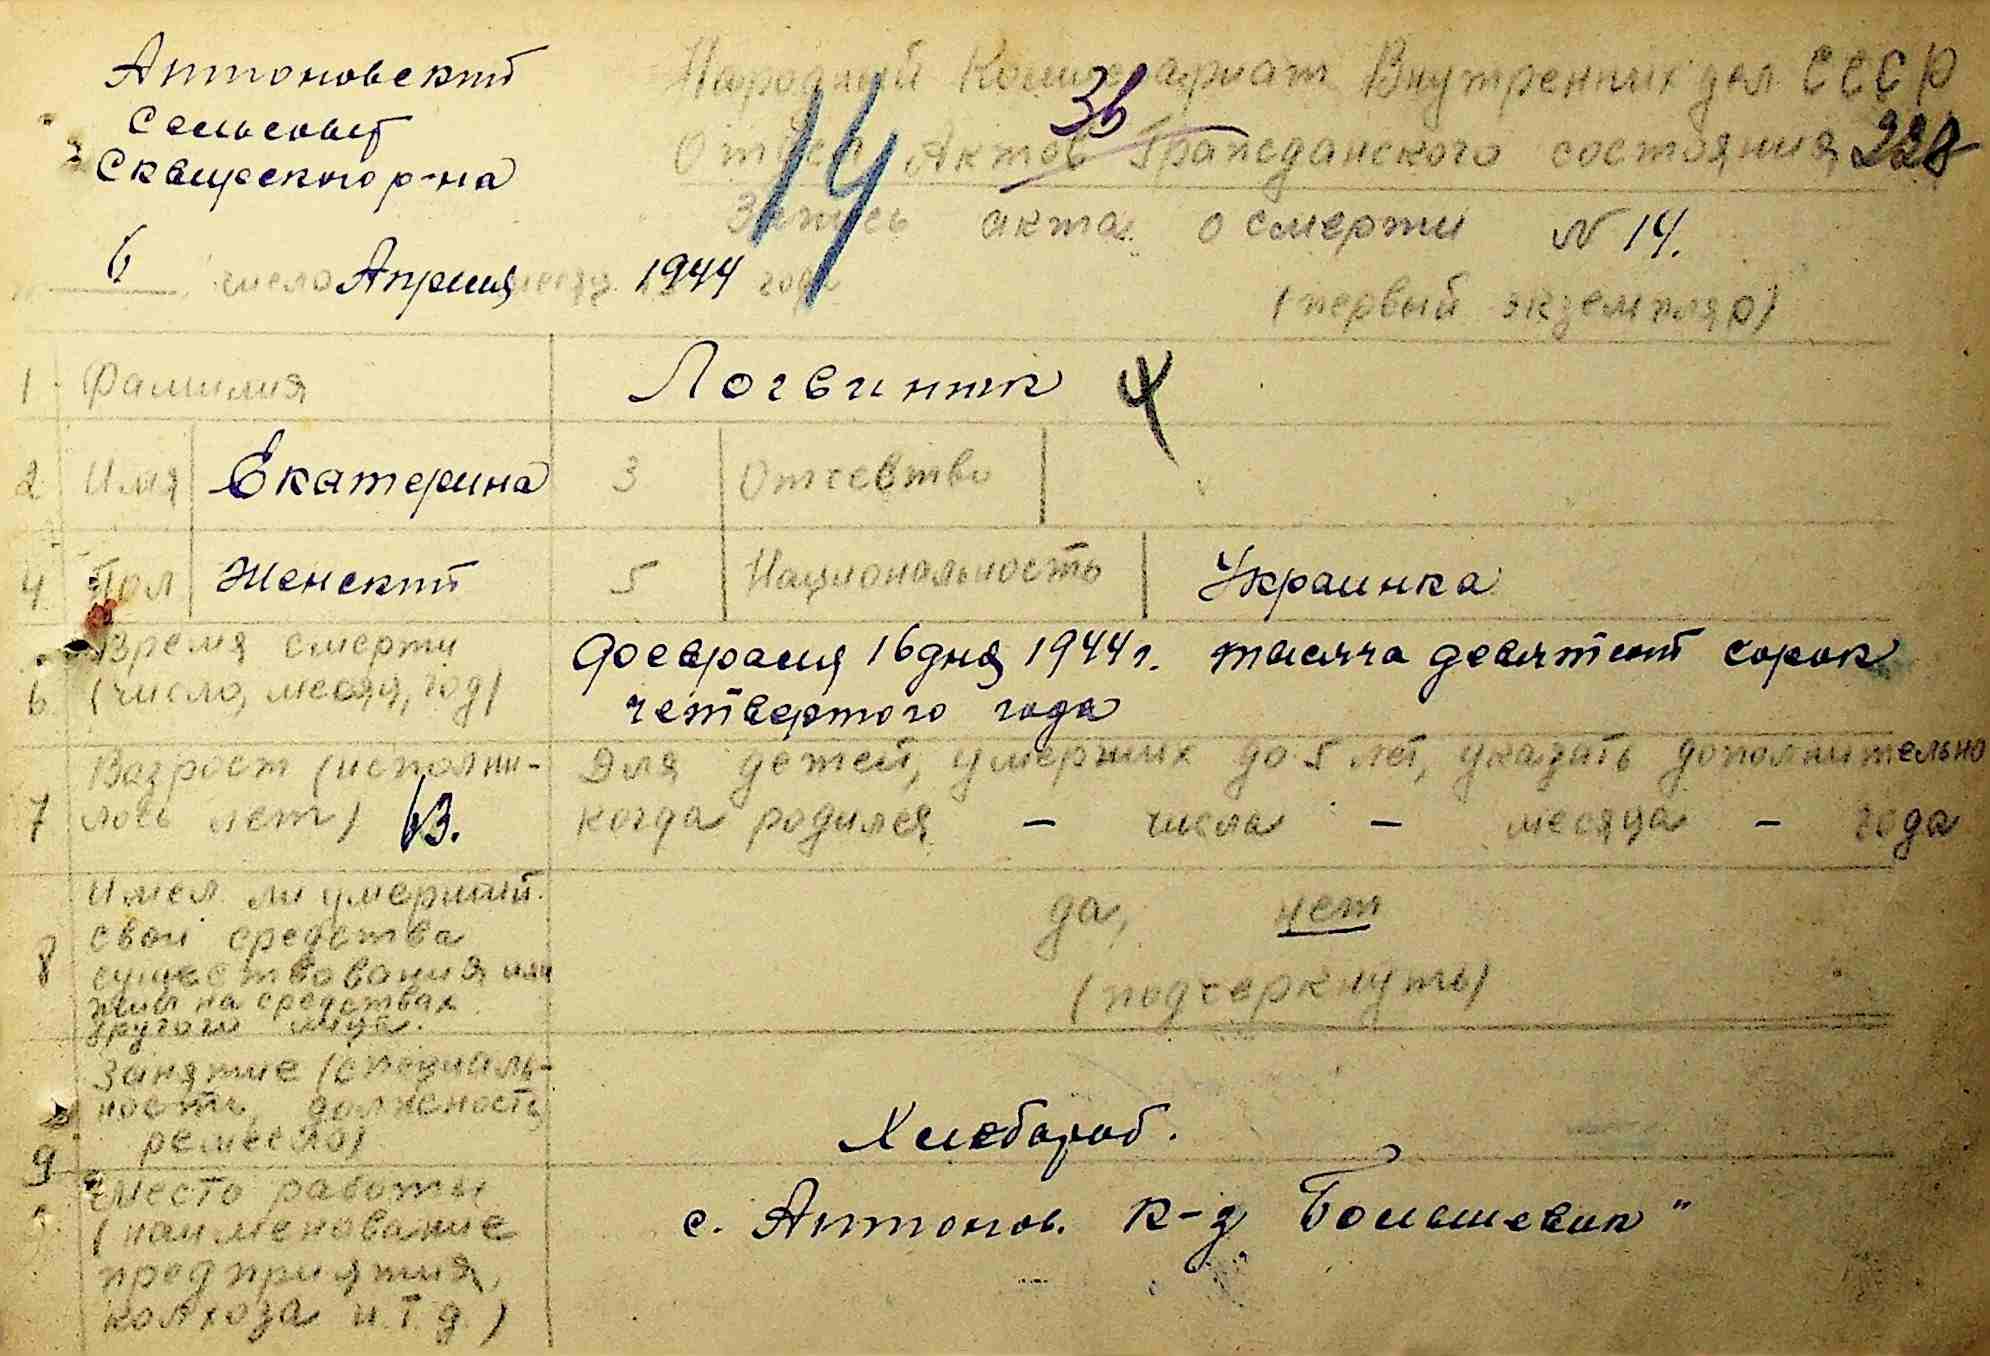 Антоновский
Сельсовет
Сквирского р-на
Народный Комиссариат Внутренних дел СССР
36
Отдел Актов Гражданского состояния 228
14
Запись акта о смерти N 14.
6 числа Апреля месяца 1944 года
(первый экземпляр)
1 Фамилия Логвинюк 4
2 Имя Екатерина 3 Отчество
4 Пол Женский 5 Национальность Украинка
6 Время смерти (число, месяц, год)
Февраля 16 дня 1944 г. тысяча девятсот сорок
четвертого года
7 Возраст (исполни-
лось лет) 63.
Для детей, умерших до 5 лет, указать дополнительно
когда родился - числа - месяца - года
8 Имел ли умерший
свои средства
существования или
жил на средствах
другого лица.
да, нет
(подчеркнуть)
9 Занятие (специаль-
ность, должность
ремесло)
Хлебороб.
Место работы
(наименование
предприятия,
колхоза и.т.д.)
с. Антонов. к-з Большевик"